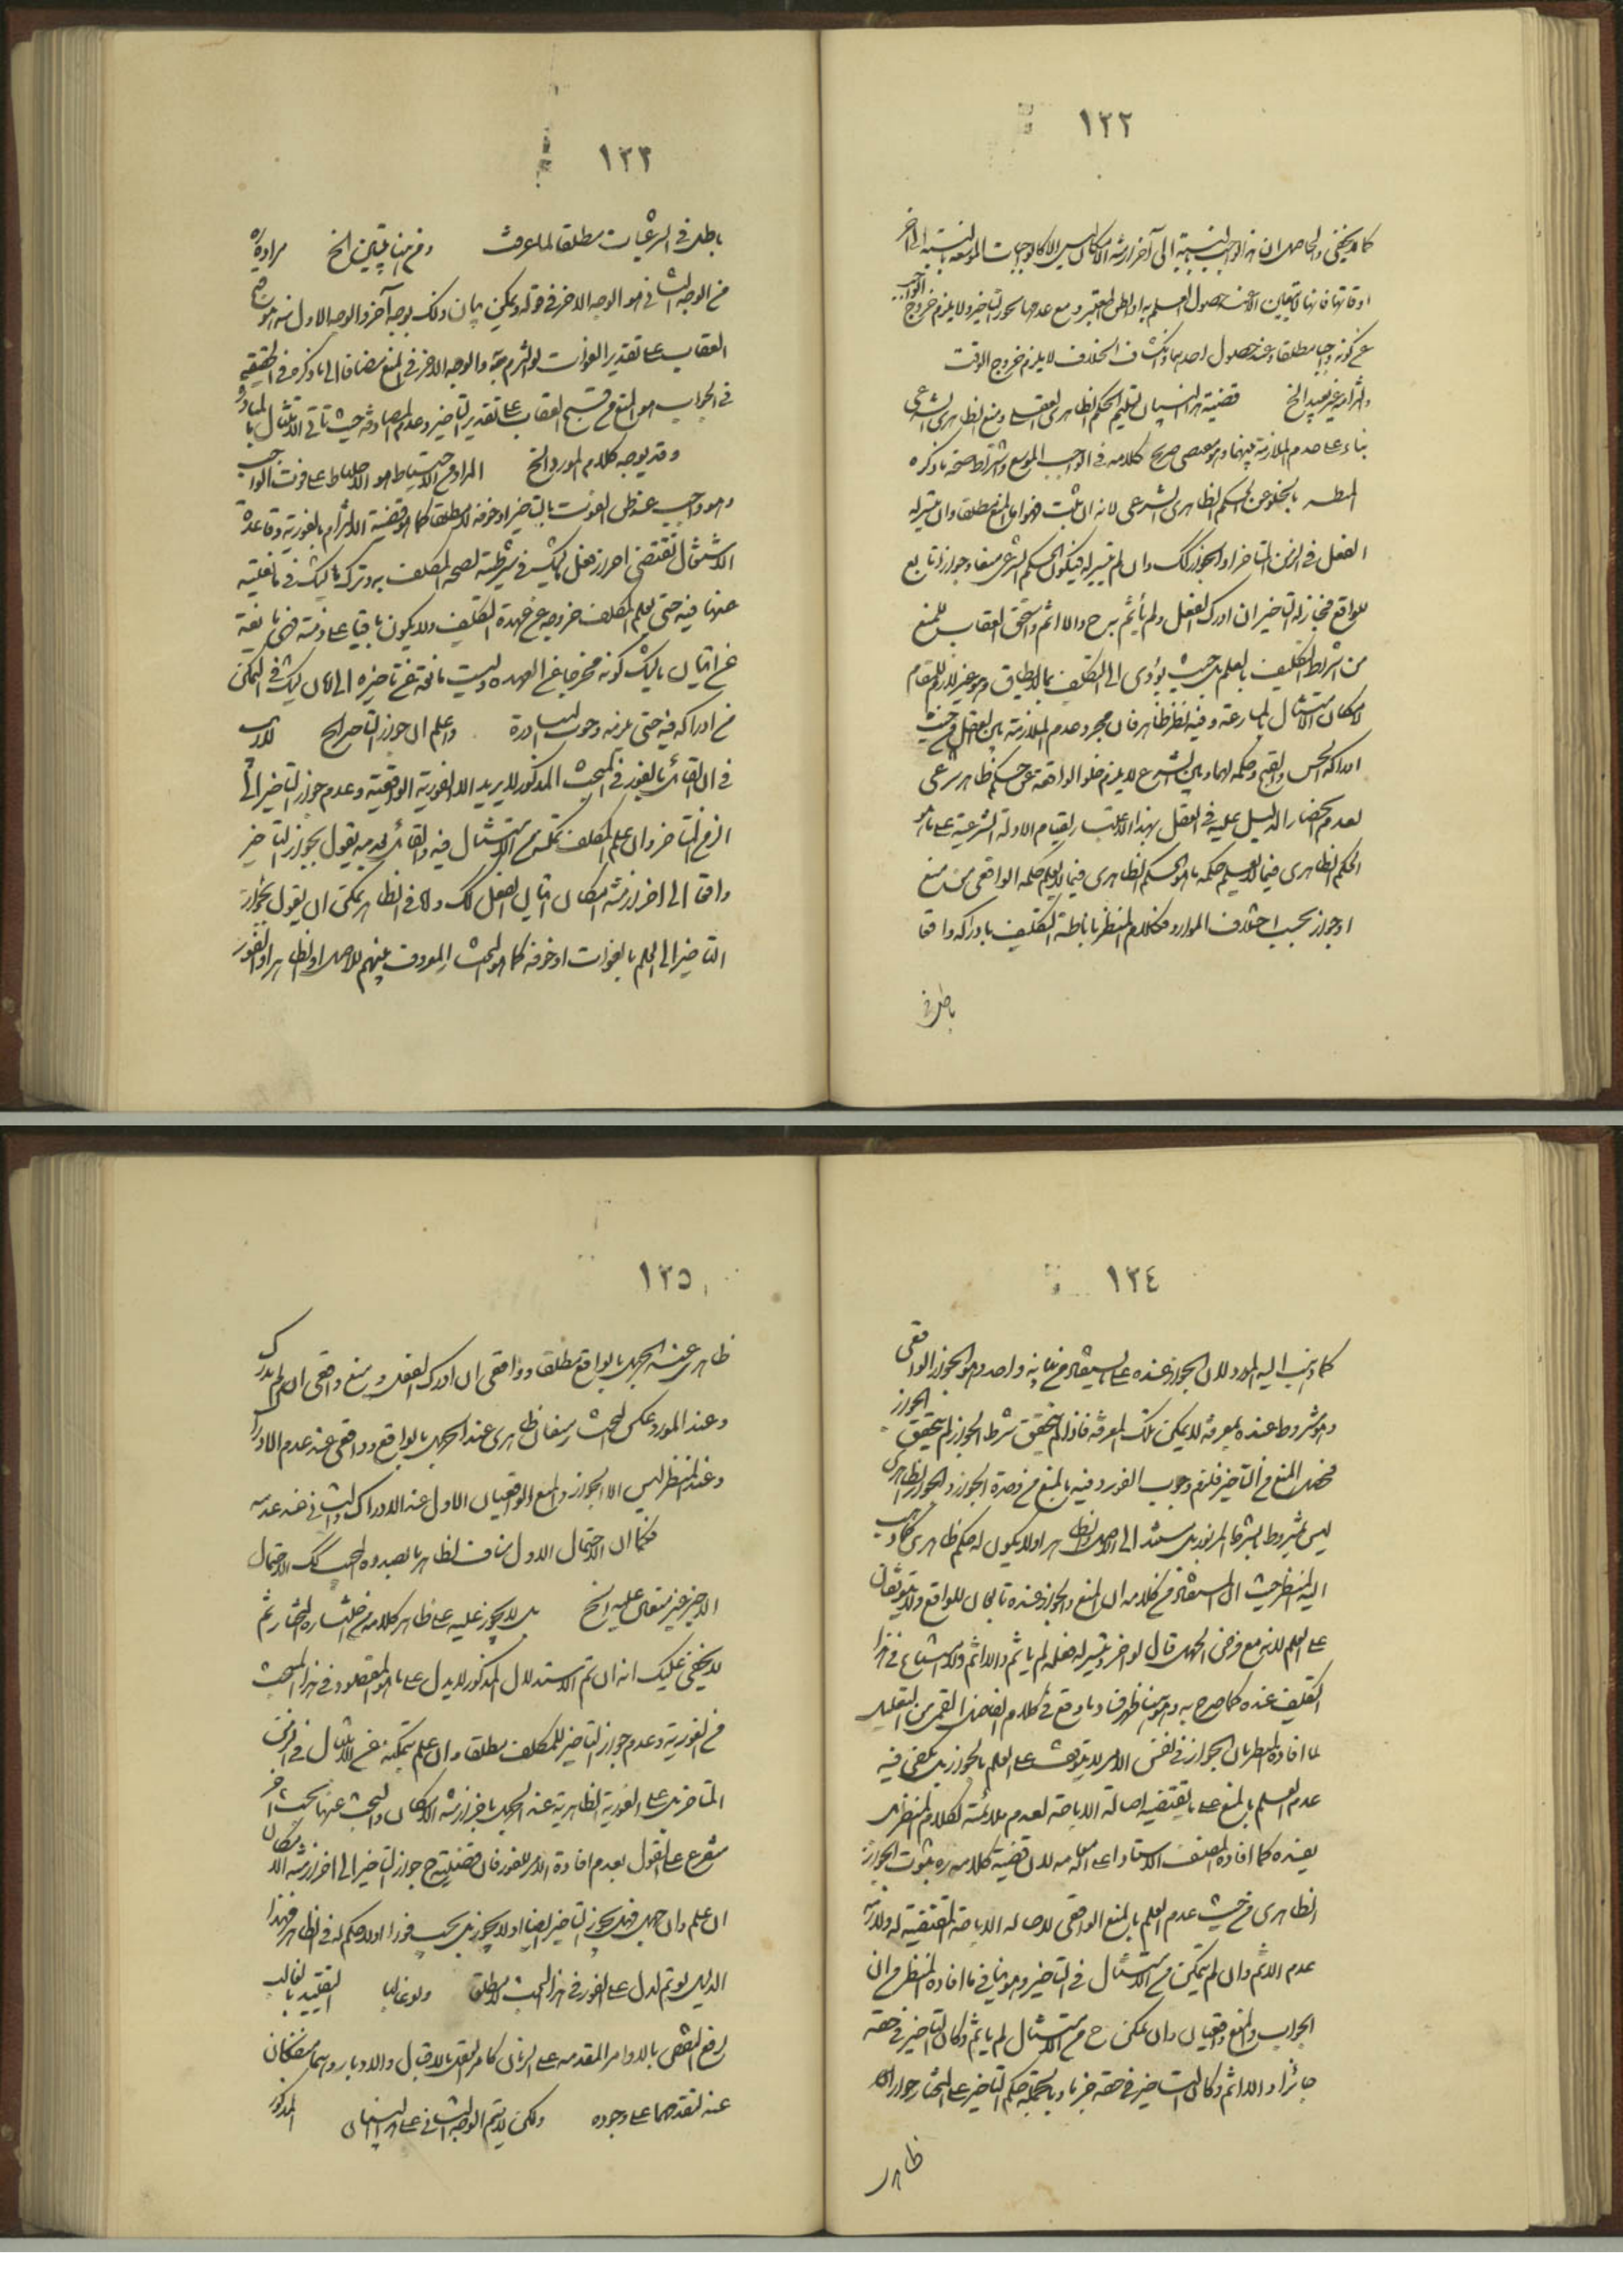 ١٢٢
كما لا يخفى والحاصل ان هذا الواجب بالنسبة الى آخر ازمنة الامكان ليس الا كالواجبات الموسعة بالنسبة الى آخر
اوقاتها فانها لا تتعين الا عند حصول العلم به او الظن المعتبر ومع عدمها يجوز التاخير ولا يلزم خروج الواجب
عن كونه واجبا مطلقا وعند حصول احدهما وانكشاف الخلاف لا يلزم خروج الوقت
والتزامه غير بعيد الخ قضية هذا البيان تسليم الحكم الظاهرى العقلى ومنع الظاهرى الشرعى
بناء على عدم الملازمة بينهما وهو صريح كلامه فى الواجب الموسع واشتراط صحة ما ذكره
بالخلو عن الحكم الظاهرى الشرعى لانه ان ثبت فهو اما المنع مطلقا وان تيسر له
الفعل فى الزمن المتاخر او الجواز كك وان لم يتيسر له فيكون الحكم الشرعى منعا وجوازا تابع
للواقع فيجاز له التاخير ان ادرك الفعل ولم يأثم به ح والا اثم واستحق العقاب للمنع
من اشتراط التكليف بالعلم بل حيث يؤدى الى التكليف بما لا يطاق وهو غير لازم للمقام
لامكان الامتثال بالمسارعة وفيه نظر ظاهر فان مجرد عدم الملازمة بين العقل من حيث
ادراكه الحسن والقبح وحكمه بهما وبين الشرع لا يلزم خلو الواقعة عن حكم ظاهرى شرعى
لعدم انحصار الدليل عليه فى العقل بهذا الاعتبار لقيام الادلة الشرعية على
الحكم الظاهرى فيما لا يعلم حكمه ما هو الحكم الظاهرى فيما لا يعلم حكمه الواقعى من منع
او جواز بحسب اختلاف الموارد فكلام المنظر باناطة التكليف بادراكه واقعا
باطل فى
١٢٣
باطل فى الشرعيات مطلقا لما عرفت ومن هنا يتبين الخ مراده
من الوجه الثانى هو الوجه الاخر فى قوله ويمكن بيان ذلك بوجه آخر والوجه الاول منه هو
العقاب على تقدير الفوات لو التزم به والوجه الاخر فى المنع مضافا الى ما ذكره فى الحقيقة
فى الجواب هو المنع من قبح العقاب على تقدير التاخير وعدم المصادفة حيث تأتى الامتثال بالمبادرة
وقد يوجه كلام المورد الخ المراد من الاحتياط هو الاحتياط على فوت الواجب
وهو واجب عند ظن الفوت بالتاخير او خوفه لا مطلقا كما هو قضية الالتزام بالفورية وقاعدة
الاشتغال تقتضى احراز فعل ما يشك فى شرطيته لصحة المكلف به وترك ما يشك فى مانعيته
عنها فيه حتى يعلم المكلف خروجه عن عهدة التكليف ولا يكون باقيا على ذمته فهى مانعة
عن اتيان ما يشك كونه مخرجا عن العهدة وليست مانعة عن تاخيره الى زمان يشك فى التمكن
من ادراكه فيه حتى يلزمه وجوب المبادرة واعلم ان جواز التاخير الخ لا ريب
فى ان القائل بالفور فى المبحث المذكور لا يريد الا الفورية الواقعية وعدم جواز التاخير الى
الزمن المتاخر وان علم المكلف تمكنه من الامتثال فيه والقائل بعدمه يقول بجواز التاخير
واقعا الى آخر ازمنة امكان اتيان الفعل كك واما فى الظاهر يمكن ان يقول بجواز
التاخير الى العلم بالفوات او خوفه كما هو المبحث المعروف بينهم للاصل او لظاهر او الفور
١٢٤
كما ذهب اليه المورد لان الجواز عنده على ما يستفاد من بيانه واحد وهو الجواز الواقعى
وهو مشروط عنده بمعرفة لا يمكن تلك المعرفة فاذا لم يتحقق شرط الجواز لم يتحقق الجواز
فحصل المنع من التاخير فلزم وجوب الفور وفيه بالمنع من وحدة الجواز والجواز الظاهرى
ليس مشروطا بشرط المزبور بل مستند الى الاصل والظاهر او لا يكون له حكم ظاهرى كما ذهب
اليه المنظر حيث ان المستفاد من كلامه ان المنع والجواز عنده تابعان للواقع ولا يتوقفان
على العلم لانه مع فرض الجهل قال لو اخر وتيسر له فعله لم يأثم والا اثم ولا امتناع فى هذا
التكليف عنده كما صرح به ومن هنا ظهر فساد ما وقع فى كلام الفاضل القمى من التعليل
لما افاده المنظر بان الجواز فى نفس الامر لا يتوقف على العلم بالجواز بل يكفى فيه
عدم العلم بالمنع على ما يقتضيه اصالة الاباحة لعدم ملائمة لكلام المنظر بل
يفنده كما افاده المصنف الاستاد اعلى الله مقامه لان قضية كلامه ره ثبوت الجواز
الظاهرى من حيث عدم العلم بالمنع الواقعى لاصالة الاباحة المقتضية له ولازمه
عدم الاثم وان لم يتمكن من الامتثال فى التاخير وهو ينافى ما افاده المنظر من ان
الجواز والمنع واقعيان وان تمكن ح من الامتثال لم يأثم وكان التاخير فى حقه
جائزا والا اثم وكان التاخير فى حقه حراما وبالجملة حكم التاخير على المختار جوازان
ظاهر
١٢٥
ظاهرى عند الجهل بالواقع مطلقا وواقعى ان ادرك الفعل ومنع واقعى ان لم يدرك
وعند المورد عكس المبحث منعان ظاهرى عند الجهل بالواقع وواقعى عند عدم الادراك
وعند المنظر ليس الا الجواز والمنع الواقعيان الاول عند الادراك والثانى عند عدمه
فكما ان الاحتمال الاول مناف لظاهر ما بصدده المجيب كك الاحتمال
الاخير غير متعال عليه الخ بل لا يجوز عليه على ظاهر كلامه من المختار ثم
لا يخفى عليك انه ان تم الاستدلال المذكور لا يدل على ما هو المقصود فى هذا المبحث
من الفورية وعدم جواز التاخير للمكلف مطلقا وان علم تمكنه من الامتثال فى الزمن
المتاخر بل على الفورية الظاهرية عند الجهل باخر ازمنة الامكان والبحث عنها بحث آخر
متفرع على القول بعدم افادة الامر للفور فان قضيته ح جواز التاخير الى آخر ازمنة الامكان
ان علم وان جهل فهل يجوز التاخير ايضا او لا يجوز بل يجب فورا او لا حكم له فى الظاهر فهذا
الدليل لو تم لدل على الفور فى هذا المبحث لا مطلقا ولو غالبا التقييد بالغالب
لرفع النقض بالاوامر المقدمة على الزمان كامر العقل بالاقبال والادبار وانهما منفكان
عنه لتقدمهما على وجوده ولكن لا يتم الوجه الثانى على هذا البيان المذكور